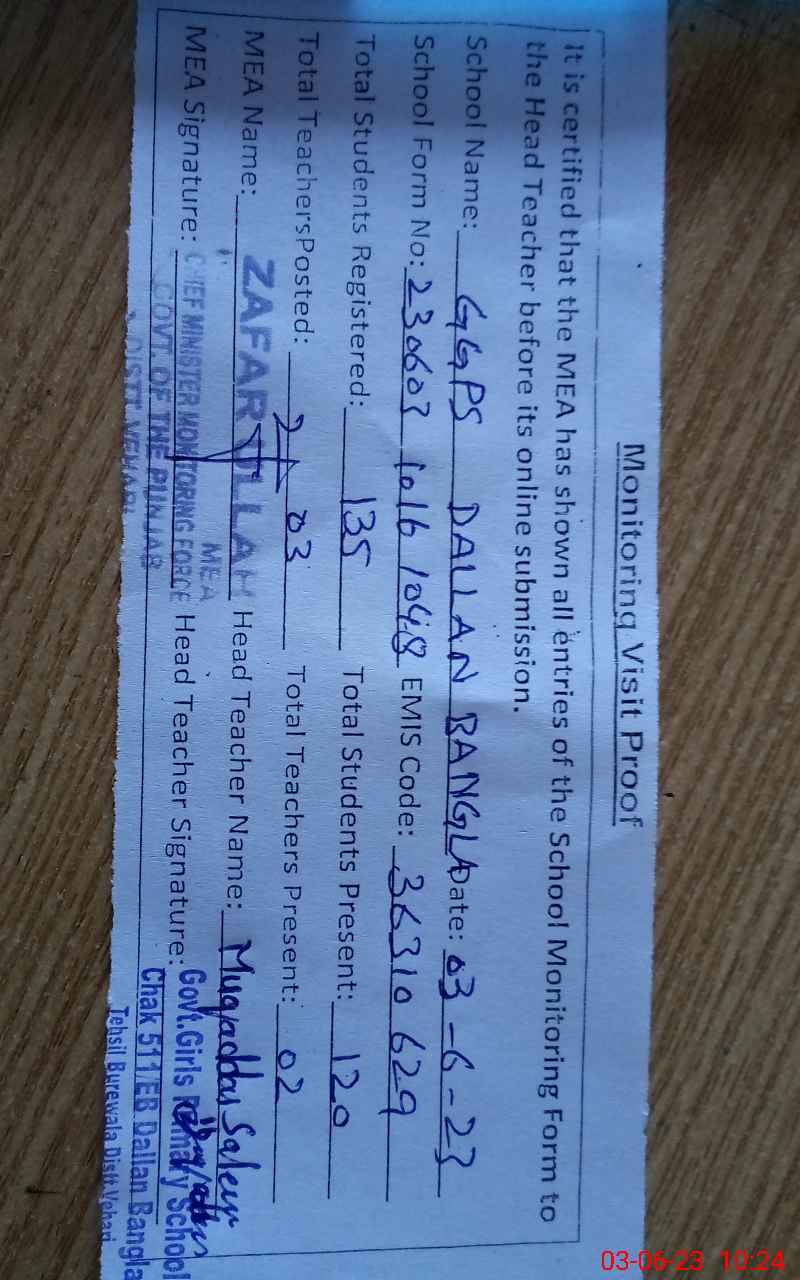 Monitoring Visit Proof
It is certified that the MEA has shown all entries of the School Monitoring Form to
the Head Teacher before its online submission.
School Name: GGPS DALLAN BANGLA Date: 03-6-23
School Form No: 230603 1016 1048 EMIS Code: 36310629
Total Students Registered: 135 Total Students Present: 120
Total TeachersPosted: 03 Total Teachers Present: 02
MEA Name: ZAFAR ULLAH Head Teacher Name: Muqaddas Saleem
MEA
MEA Signature: CHIEF MINISTER MONITORING FORCE Head Teacher Signature: Govt.Girls Primary School
GOVT. OF THE PUNJAB Chak 511/EB Dallan Bangla
DISTT. VEHARI Tehsil Burewala Distt Vehari
03-06-23 10:24